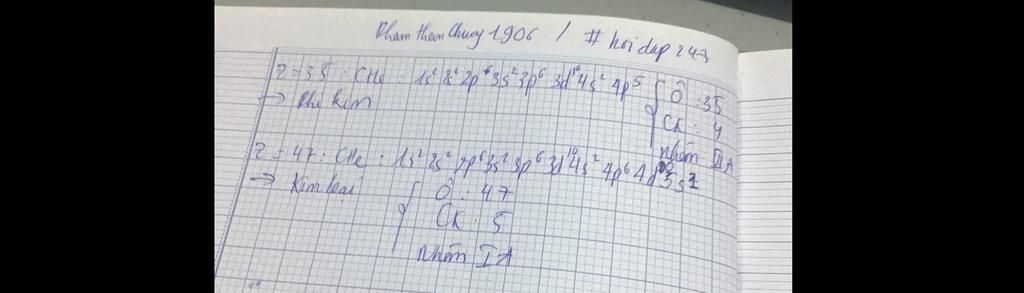 Pham them Chuy 1906 / # hoidap 247
Z=35: CHe: 1s² 2s² 2p⁶ 3s² 3p⁶ 3d¹⁰ 4s² 4p⁵ { Ô : 35
→ Phi kim
CK : 4
nhóm
Z = 47: CHe: 1s² 2s² 2p⁶ 3s² 3p⁶ 3d¹⁰ 4s² 4p⁶ 4d¹⁰ 5s¹
→ Kim loại { Ô : 47
CK : 5
nhóm IA